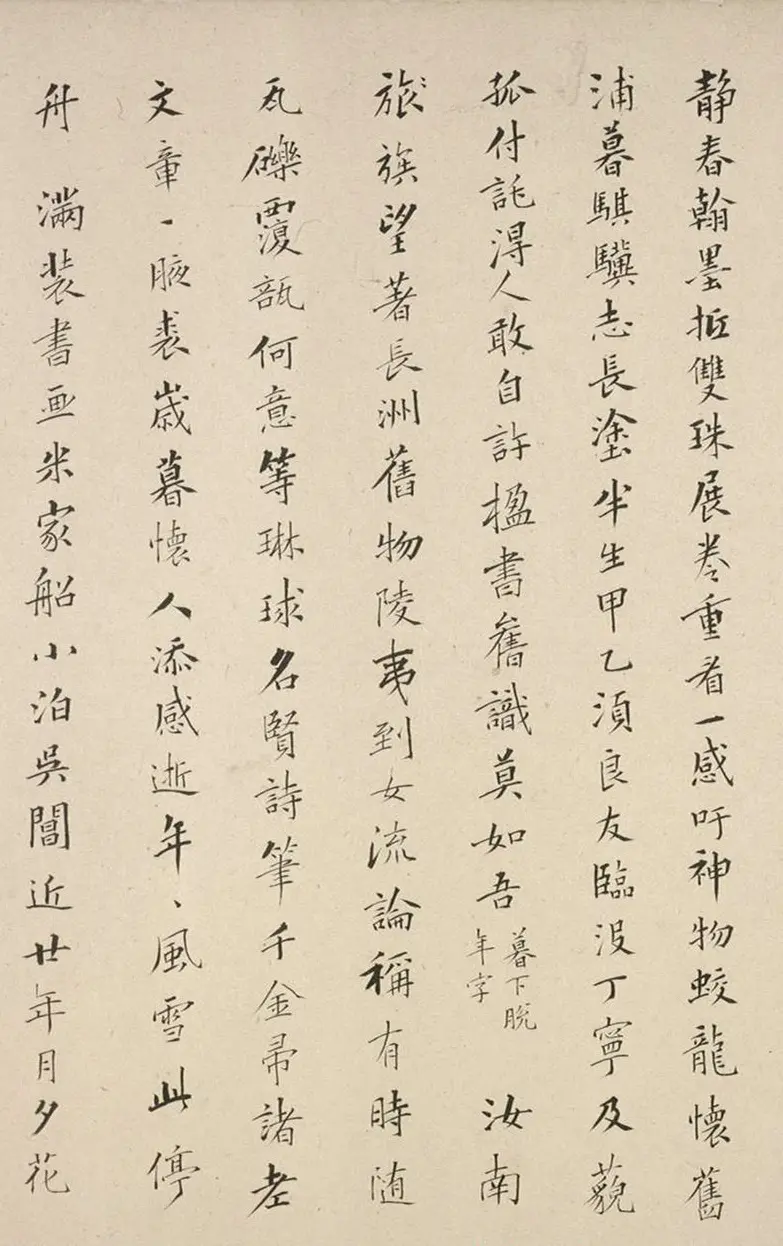 静春翰墨抵雙珠展卷重看一感吁神物蛟龍懷舊
浦暮騏驥志長塗半生甲乙湏良友臨沒丁寧及藐
孤付託淂人敢自許楹書舊識莫如吾
暮下脫
年字
汝南
旅族望著長洲舊物陵夷到女流論稱有時随
瓦礫覆瓿何意等琳球名賢詩筆千金帚諸老
文章一腋裘歲暮懷人添感逝年、風雪此停
舟 滿裝書画米家船小泊吳閶近廿年月夕花